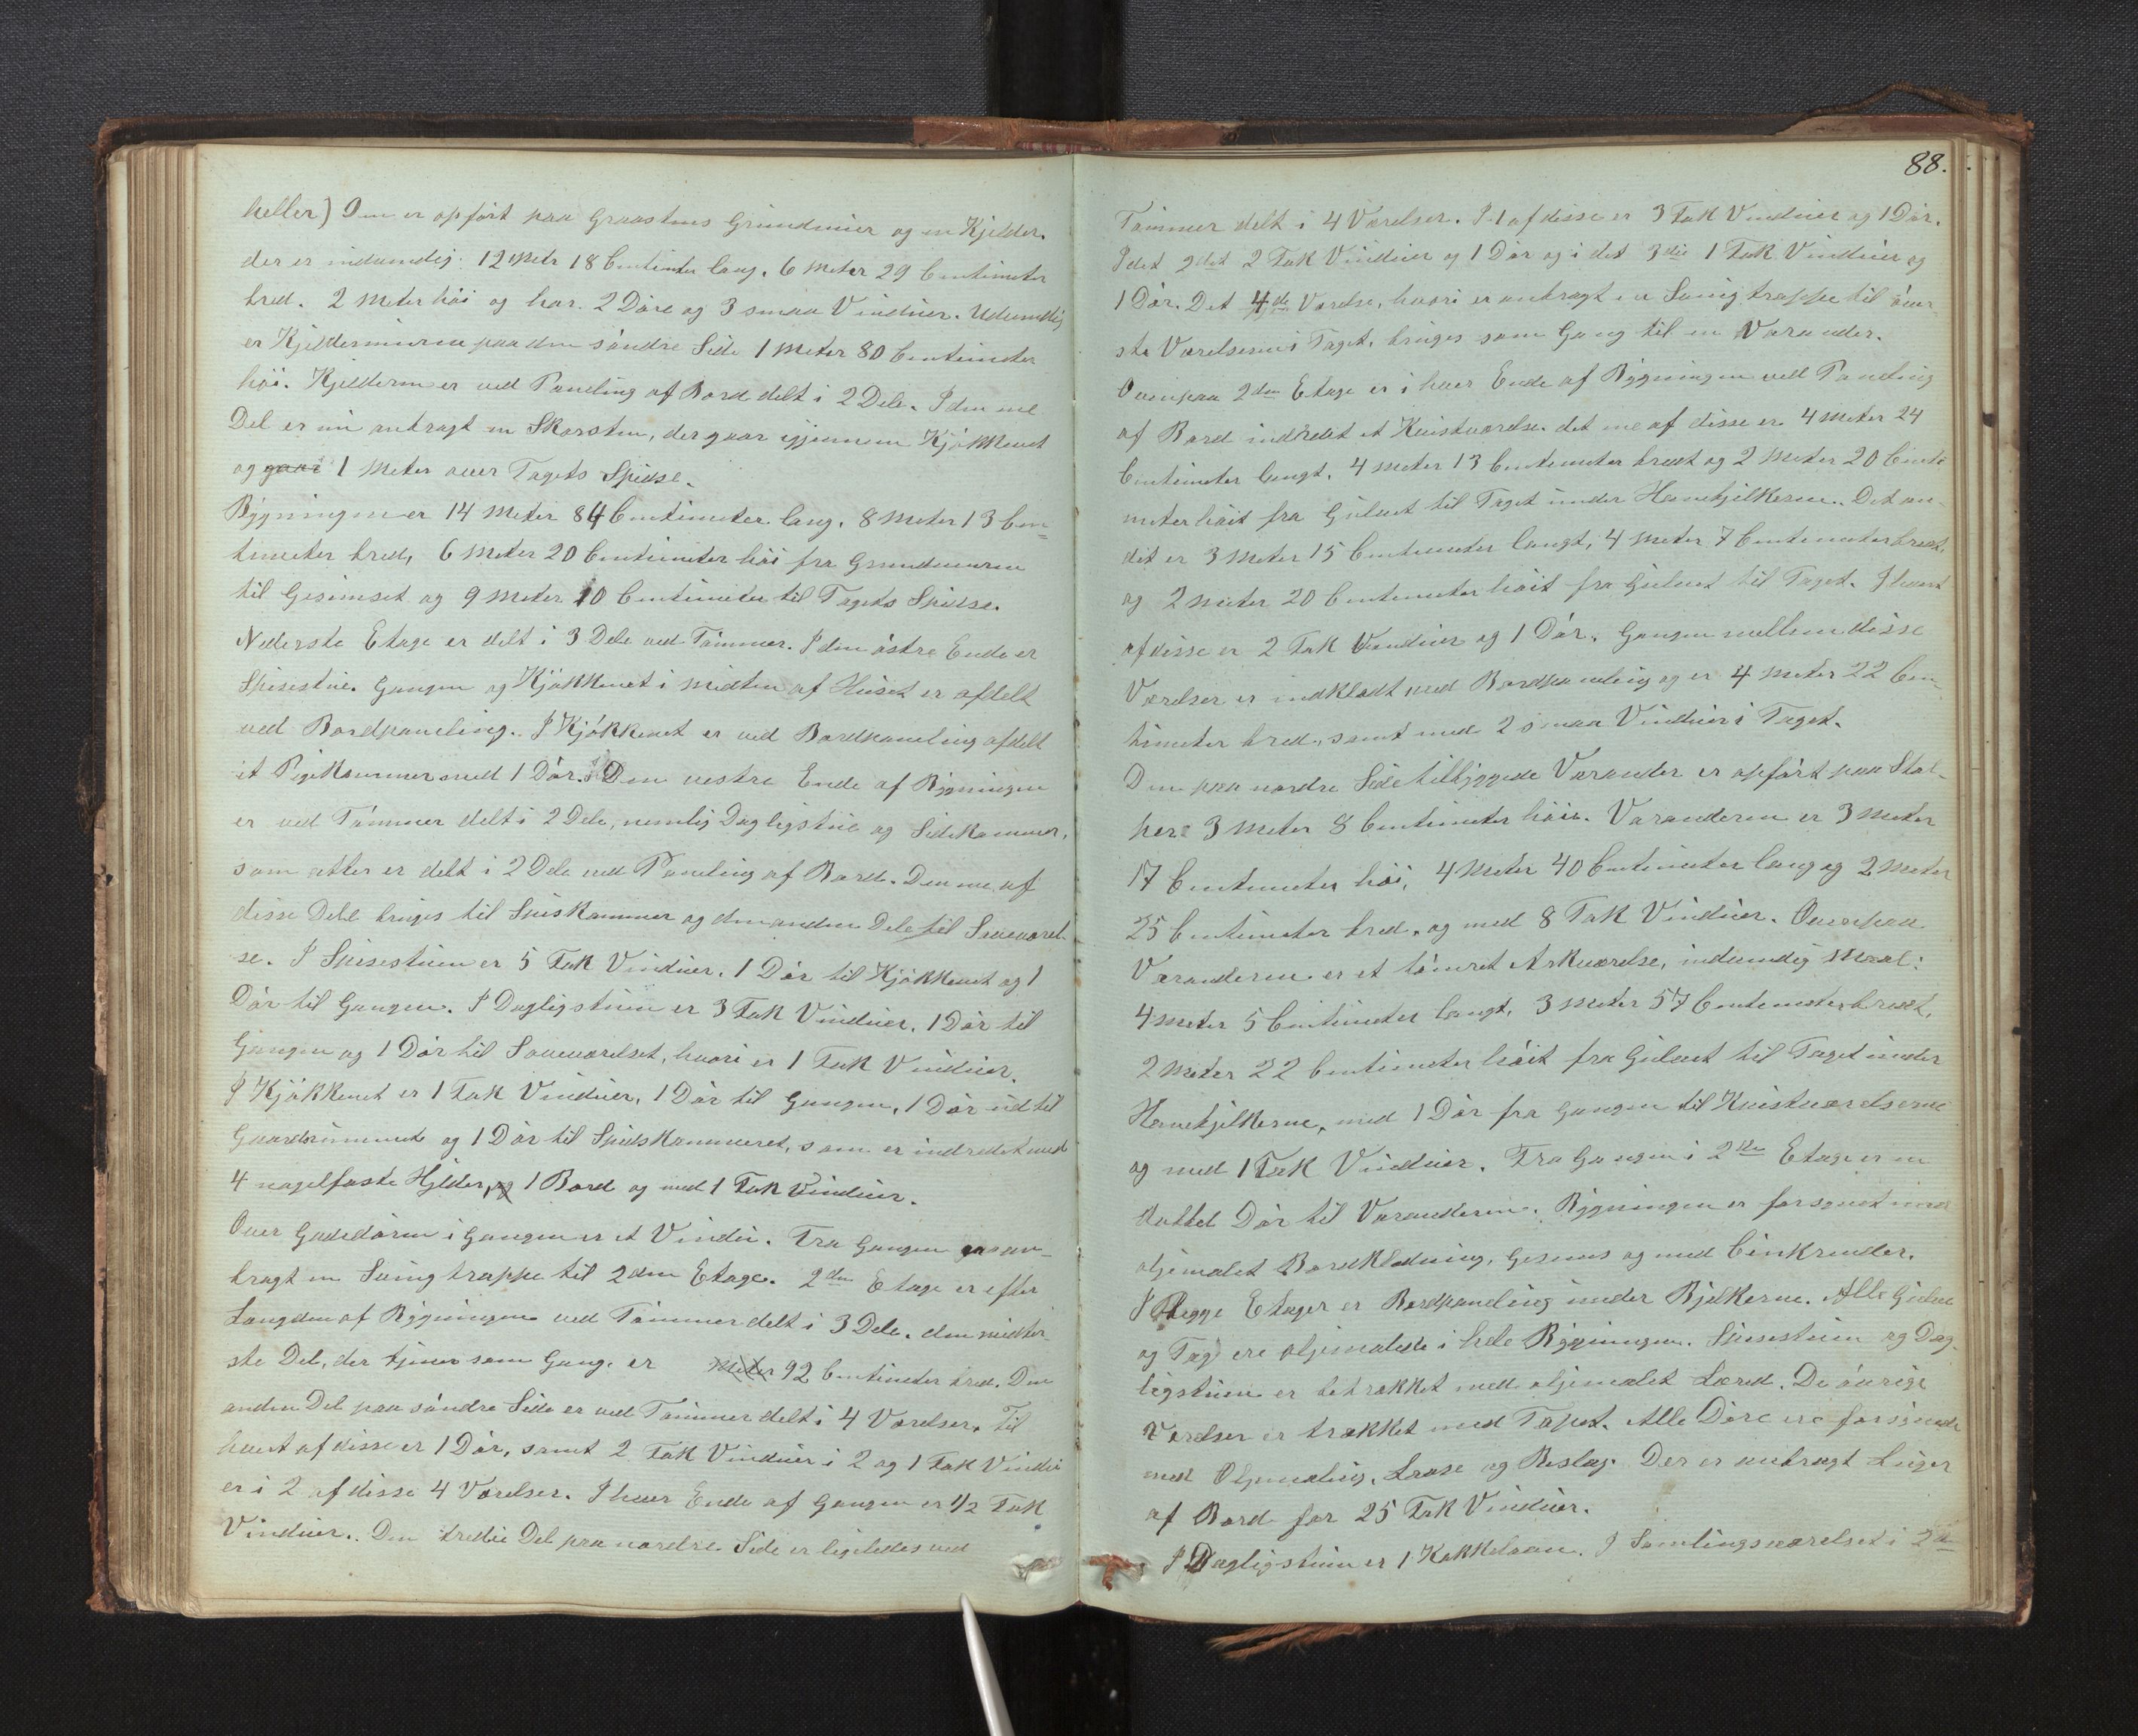 heller) Den er opført paa Graastens Grundmur og en Kjelder.
der er indvendig: 12 Metr 18 Centimeter lang, 6 Meter 29 Centimeter
bred. 2 Meter höi og har 2 Döre og 3 smaa Vinduer. Udvendig
er Kjeldermuren paa den söndre Side 1 Meter 80 Centimeter
höi. Kjelderen er ved Paneling af Bord delt i 2 Dele. I den ene
Del er en anbragt en Skorsten, der gaar igjennem Kjökkenet
og gaar 1 Meter over Tagets Spidse.
Bygningen er 14 Meter 84 Centimeter lang, 8 Meter 13 Cen=
timeter bred, 6 Meter 20 Centimeter höi fra Grundmuren
til Gesimset og 9 Meter 10 Centimeter til Tagets Spidse.
Nederste Etage er delt i 3 Dele ved Tömmer. I den östre Ende er
Spisestue. Gangen og Kjökkenet i Midten af Huset er afdelt
ved Bordpaneling. I Kjökkenet er ved Bordpaneling afdelt
et Pigekammer med 1 Dör. Den vestre Ende af Bygningen
er ved Tömmer delt i 2 Dele, nemlig Dagligstue og Sidekammer,
som atter er delt i 2 Dele ved Paneling af Bord. Den ene af
disse Dele bruges til Spiskammer og den anden Dele til Soveværel-
se. I Spisestuen er 5 Fak Vinduer, 1 Dör til Kjökkenet og 1
Dör til Gangen. I Dagligstuen er 3 Fak Vinduer, 1 Dör til
Gangen og 1 Dör til Soveværelset, hvori er 1 Fak Vinduer.
I Kjökkenet er 1 Fak Vinduer, 1 Dör til Gangen, 1 Dör ud til
Gaardsrummet og 1 Dör til Spidskammeret, som er indredet med
4 nagelfaste Hylder, og 1 Bord og med 1 Fak Vinduer.
Over Gadedören i Gangen er et Vindu. Fra Gangen er an-
bragt en Svingtrappe til 2den Etage. 2den Etage er efter
Længden af Bygningen ved Tömmer delt i 3 Dele. den midter-
ste Del, der tjener som Gang, er Meter 92 Centimeter bred. Den
anden Del paa söndre Side er ved Tömmer delt i 4 Værelser. Til
hvert af disse er 1 Dör, samt 2 Fak Vinduer i 2 og 1 Fak Vindu
er i 2 af disse 4 Værelser. I hver Ende af Gangen er 1/2 Fak
Vinduer. Den tredie Del paa nordre Side er ligeledes ved
88.
Tömmer delt i 4 Værelser. I 1 af disse er 3 Fak Vinduer og 1 Dör.
I det 2det 2 Fak Vinduer og 1 Dör og i det 3die 1 Fak Vinduer og
1 Dör. Det 4de Værelse, hvori er anbragt en Svingtrappe til över
ste Værelserne i Taget, bruges som Gang til en Varander.
Ovenpaa 2den Etage er i hver Ende af Bygningen ved Paneling
af Bord indredet et Kvistværelse. det ene af disse er 4 Meter 24
Centimeter langt, 4 Meter 13 Centimeter bredt og 2 Meter 20 Centi
meter höit fra Gulvet til Taget under Hanebjelkerne. Det an-
det er 3 Meter 15 Centimeter langt, 4 Meter 7 Centimeter bredt,
og 2 Meter 20 Centimeter höit fra Gulvet til Taget. I hvert
af disse er 2 Fak Vinduer og 1 Dör. Gangen mellem disse
Værelser er indklædt med Bordpaneling og er 4 Meter 22 Cen-
timeter bred, samt med 2 smaa Vinduer i Taget.
Den paa nordre Side tilbyggede Varander er opfört paa Stol-
per 3 Meter 8 Centimeter höie. Varanderen er 3 Meter
17 Centimeter höi, 4 Meter 40 Centimeter lang og 2 Meter
25 Centimeter bred, og med 8 Fak Vinduer. Ovenpaa
Varanderen er et tömret Arkværelse, indvendig Maal:
4 Meter 5 Centimeter langt, 3 Meter 57 Centimeter bredt,
2 Meter 22 Centimeter höit fra Gulvet til Taget under
Hanebjelkerne, med 1 Dör fra Gangen til Kvistværelserne
og med 1 Fak Vinduer. Fra Gangen i 2den Etage er en
dobbel Dör til Varanderen. Bygningen er forsynet med
oljemalet Bordklædning, Gesims og med Cinkrender.
I Begge Etager er Bordpaneling under Bjelkerne. Alle Gulve
og Tag ere oljemalede i hele Bygningen. Spisestuen og Dag-
ligstuen er betrækket med oljemalet Lærred. De övrige
Værelser er trækket med Tapet. Alle Döre ere forsynede
med Oljemaling, Laase og Beslag. Der er anbragt Luger
af Bord for 25 Fak Vinduer.
I Dagligstuen er 1 Kakkelovn. I Samlingsværelset i 2d